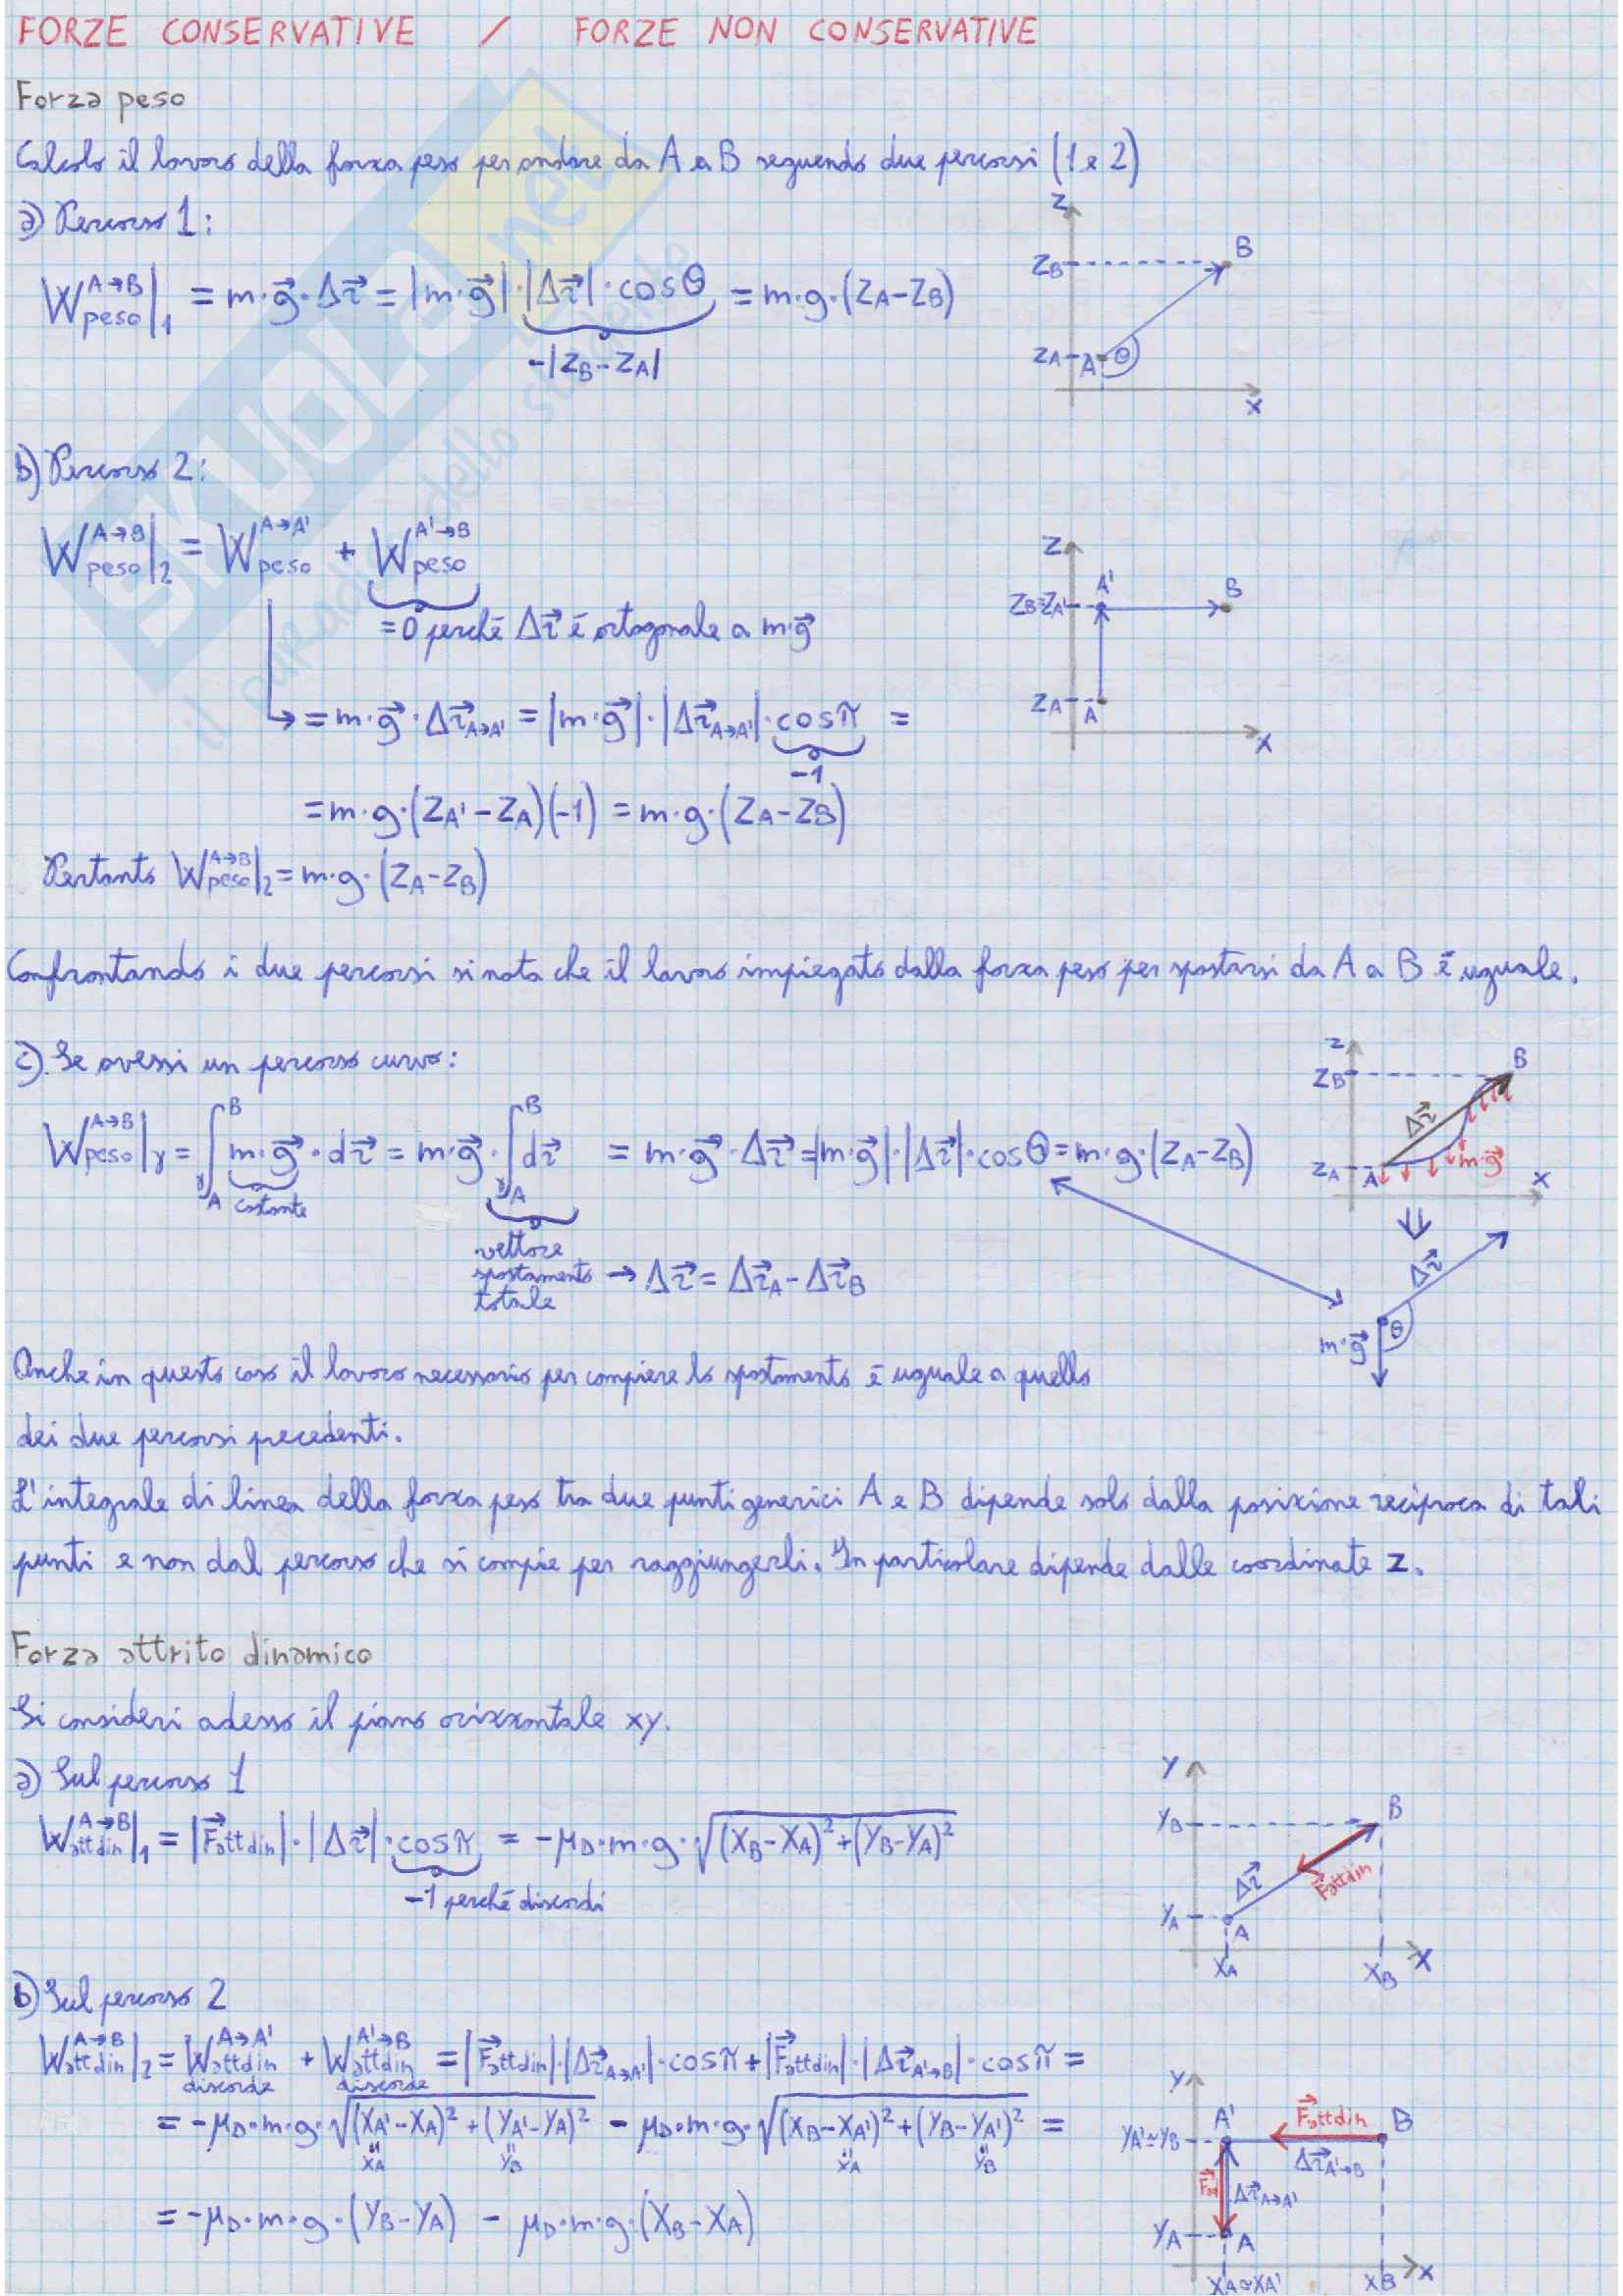 FORZE CONSERVATIVE / FORZE NON CONSERVATIVE
Forza peso
Calcolo il lavoro della forza peso per andare da A a B seguendo due percorsi (1 e 2)
a) Percorso 1:
W_peso^{A→B}|₁ = m·g⃗·Δr⃗ = |m·g⃗|·|Δr⃗|·cosθ = m·g·(Z_A-Z_B)
-|Z_B-Z_A|
Z
Z_B
B
Z_A
A
θ
X
b) Percorso 2:
W_peso^{A→B}|₂ = W_peso^{A→A'} + W_peso^{A'→B}
=0 perché Δr⃗ é ortogonale a m·g⃗
→ = m·g⃗·Δr⃗_{A→A'} = |m·g⃗|·|Δr⃗_{A→A'}|·cosπ =
-1
= m·g·(Z_A'-Z_A)(-1) = m·g·(Z_A-Z_B)
Pertanto W_peso^{A→B}|₂ = m·g·(Z_A-Z_B)
Z
A'
B
Z_B=Z_A'
Z_A
A
X
Confrontando i due percorsi si nota che il lavoro impiegato dalla forza peso per spostarsi da A a B é uguale.
c) Se avessi un percorso curvo:
W_peso^{A→B}|γ = γ∫_A^B m·g⃗·dr⃗ = m·g⃗·γ∫_A^B dr⃗ = m·g⃗·Δr⃗ = |m·g⃗|·|Δr⃗|·cosθ = m·g·(Z_A-Z_B)
costante
vettore
spostamento → Δr⃗ = Δr⃗_A-Δr⃗_B
totale
Z
Z_B
B
Δr⃗
Z_A
A
m·g⃗
X
⇓
Δr⃗
θ
m·g⃗
Anche in questo caso il lavoro necessario per compiere lo spostamento é uguale a quello
dei due percorsi precedenti.
L'integrale di linea della forza peso tra due punti generici A e B dipende solo dalla posizione reciproca di tali
punti e non dal percorso che si compie per raggiungerli. In particolare dipende dalle coordinate z.
Forza attrito dinamico
Si consideri adesso il piano orizzontale xy.
a) Sul percorso 1
W_attdin^{A→B}|₁ = |F⃗_attdin|·|Δr⃗|·cosπ = -μ_D·m·g·√((X_B-X_A)²+(Y_B-Y_A)²)
-1 perché discordi
Y
Y_B
B
Δr⃗
F⃗attdin
Y_A
A
X_A
X_B
X
b) Sul percorso 2
W_attdin^{A→B}|₂ = W_attdin^{A→A'} + W_attdin^{A'→B} = |F⃗_attdin|·|Δr⃗_{A→A'}|·cosπ + |F⃗_attdin|·|Δr⃗_{A'→B}|·cosπ =
discorde discorde
= -μ_D·m·g·√((X_A'-X_A)²+(Y_A'-Y_A)²) - μ_D·m·g·√((X_B-X_A')²+(Y_B-Y_A')²) =
X_A Y_B X_A Y_B
= -μ_D·m·g·(Y_B-Y_A) - μ_D·m·g·(X_B-X_A)
Y
A'
F⃗attdin
B
Y_A'≃Y_B
Δr⃗_{A'→B}
F⃗ad
Δr⃗_{A→A'}
Y_A
A
X_A≃X_A'
X_B
X
SKUOLA.net
il paradiso dello studente